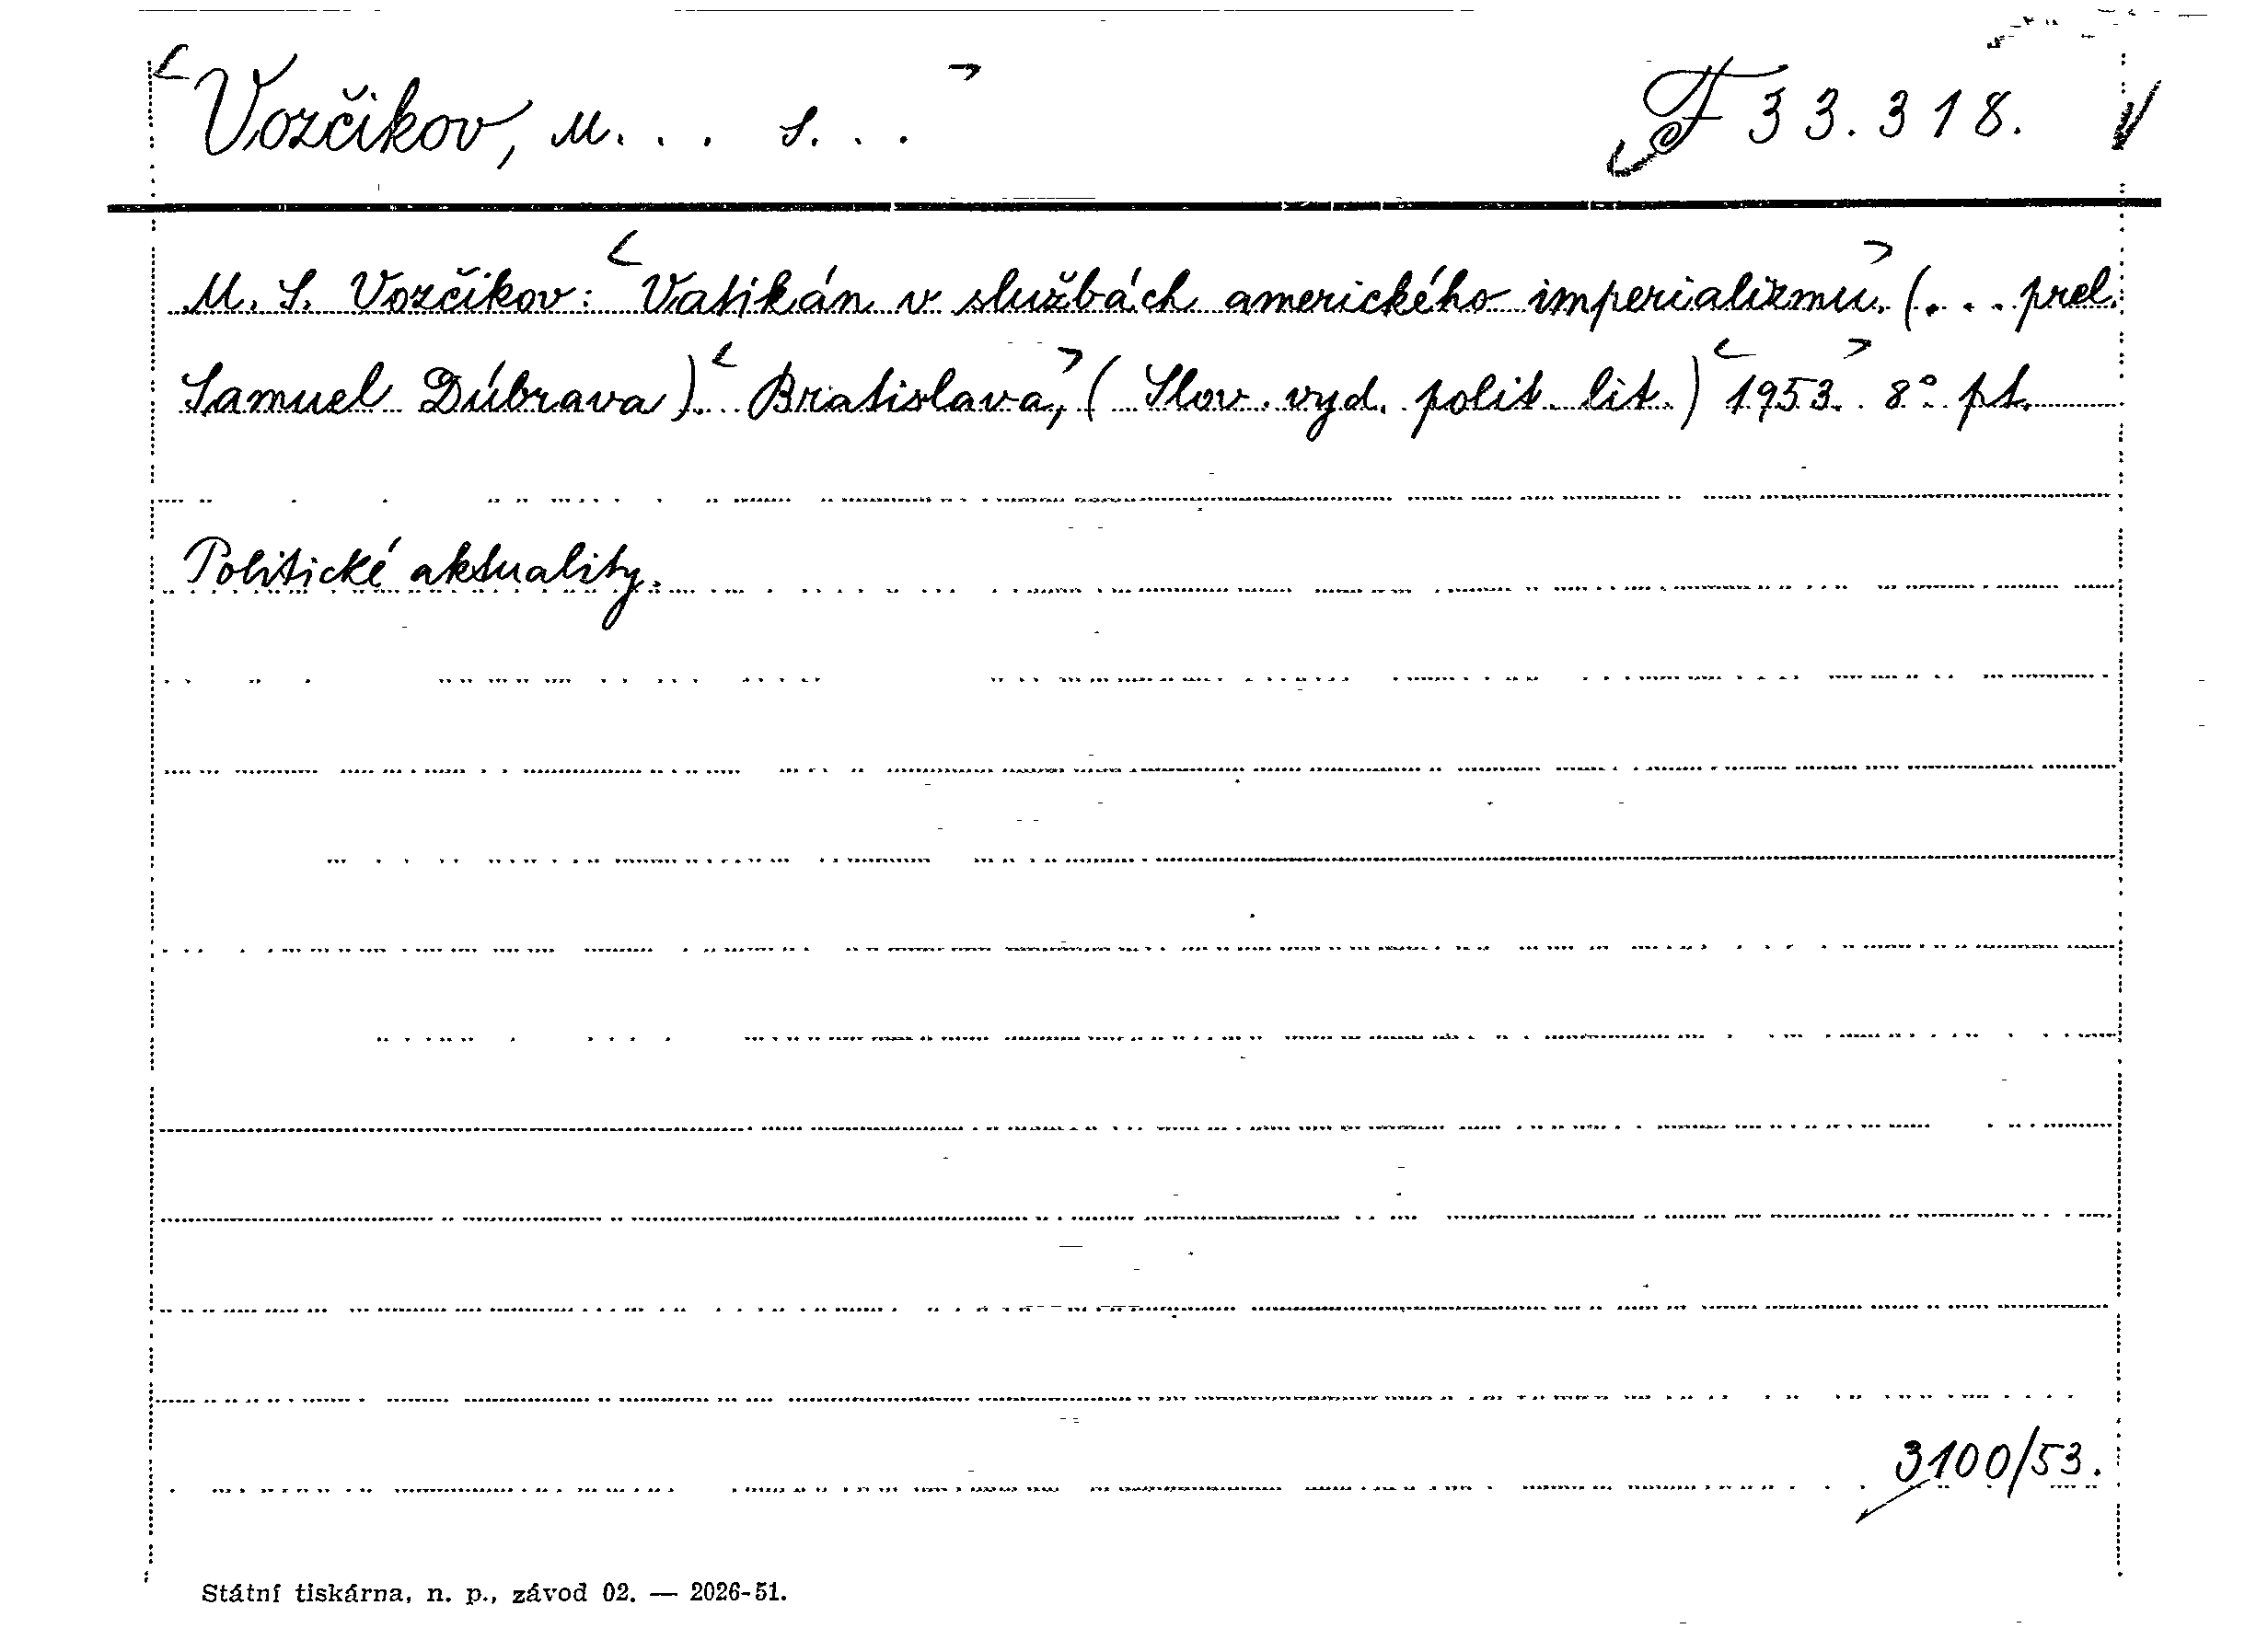 Vozčikov, M. . . S. . . F 33.318.
M. S. Vozčikov: Vatikán v službách amerického imperializmu. (. . . prel.
Samuel Dúbrava). Bratislava, (Slov. vyd. polit. lit.) 1953. 8° pt.
Politické aktuality.
3100/53.
Státní tiskárna, n. p., závod 02. — 2026-51.